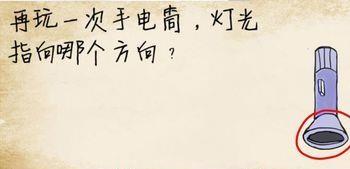 再玩一次手电筒，灯光
指向哪个方向？